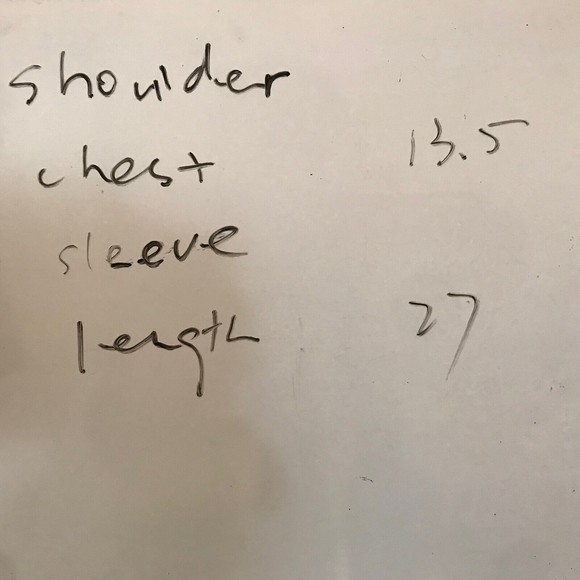 shoulder
chest 13.5
sleeve
length 27